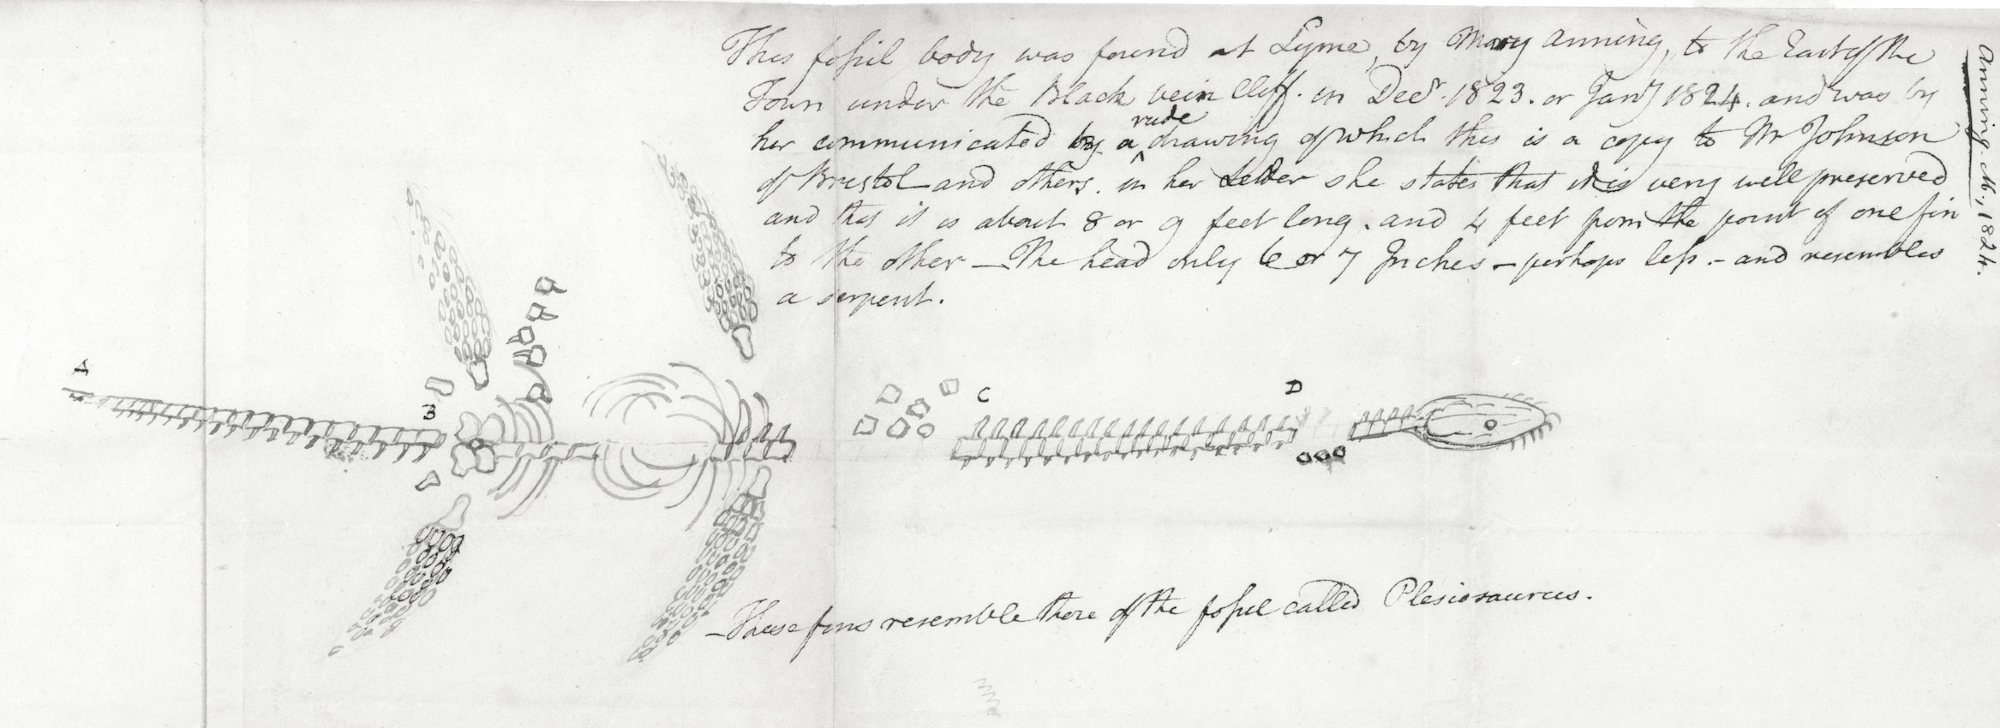 This fossil body was found at Lyme, by Mary Anning, to the East of the
Town under the Black vein Cliff. in Decr. 1823. or Jany 1824. and was by
her communicated by a rude drawing of which this is a copy to Mr Johnson
of Bristol and others. in her Letter she states that it is very well preserved
and that it is about 8 or 9 feet long. and 4 feet from the point of one fin
to the other — The head only 6 or 7 Inches — perhaps less. — and resembles
a serpent.
Anning. M., 1824.
A
B
C
D
— These fins resemble those of the fossil called Plesiosaurus.